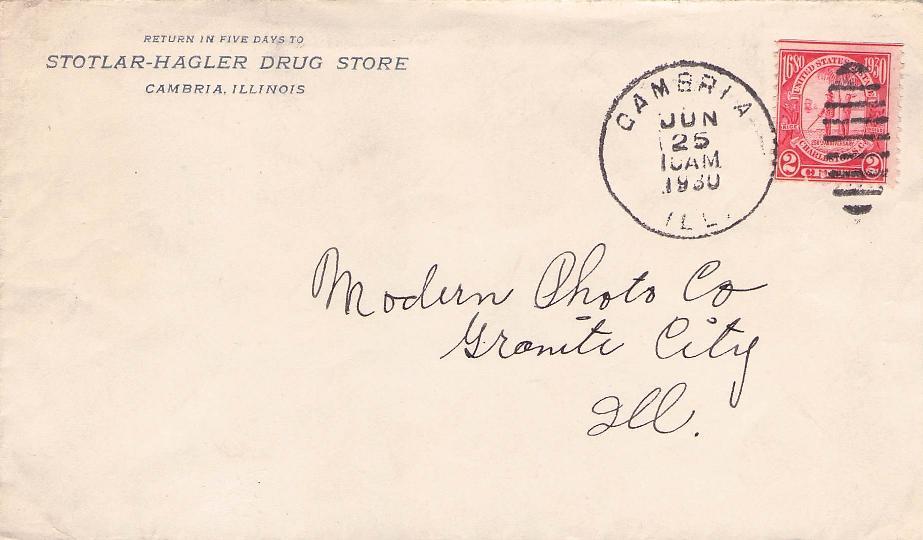 RETURN IN FIVE DAYS TO
STOTLAR-HAGLER DRUG STORE
CAMBRIA, ILLINOIS
CAMBRIA
JUN
25
10AM
1930
ILL.
1680 1930
UNITED STATES
CHARLESTON
2 CENTS 2
Modern Photo Co
Granite City
Ill.